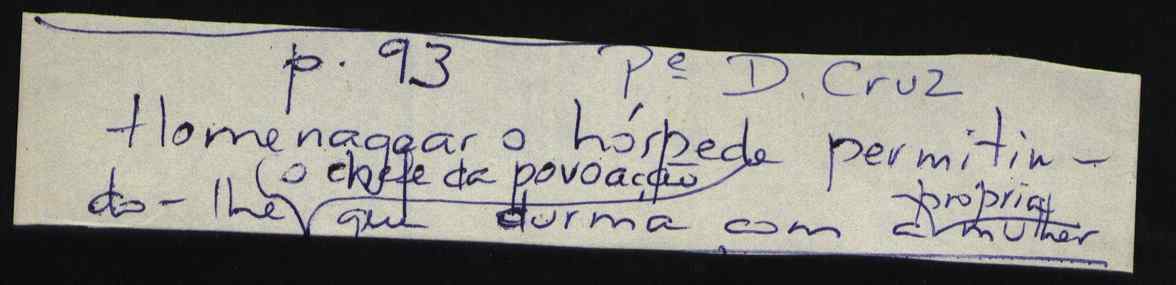 p. 93 Pe D. Cruz
Homenagear o hóspede permitin-
(o chefe da povoação
própria
do-lhe que durma com a mulher